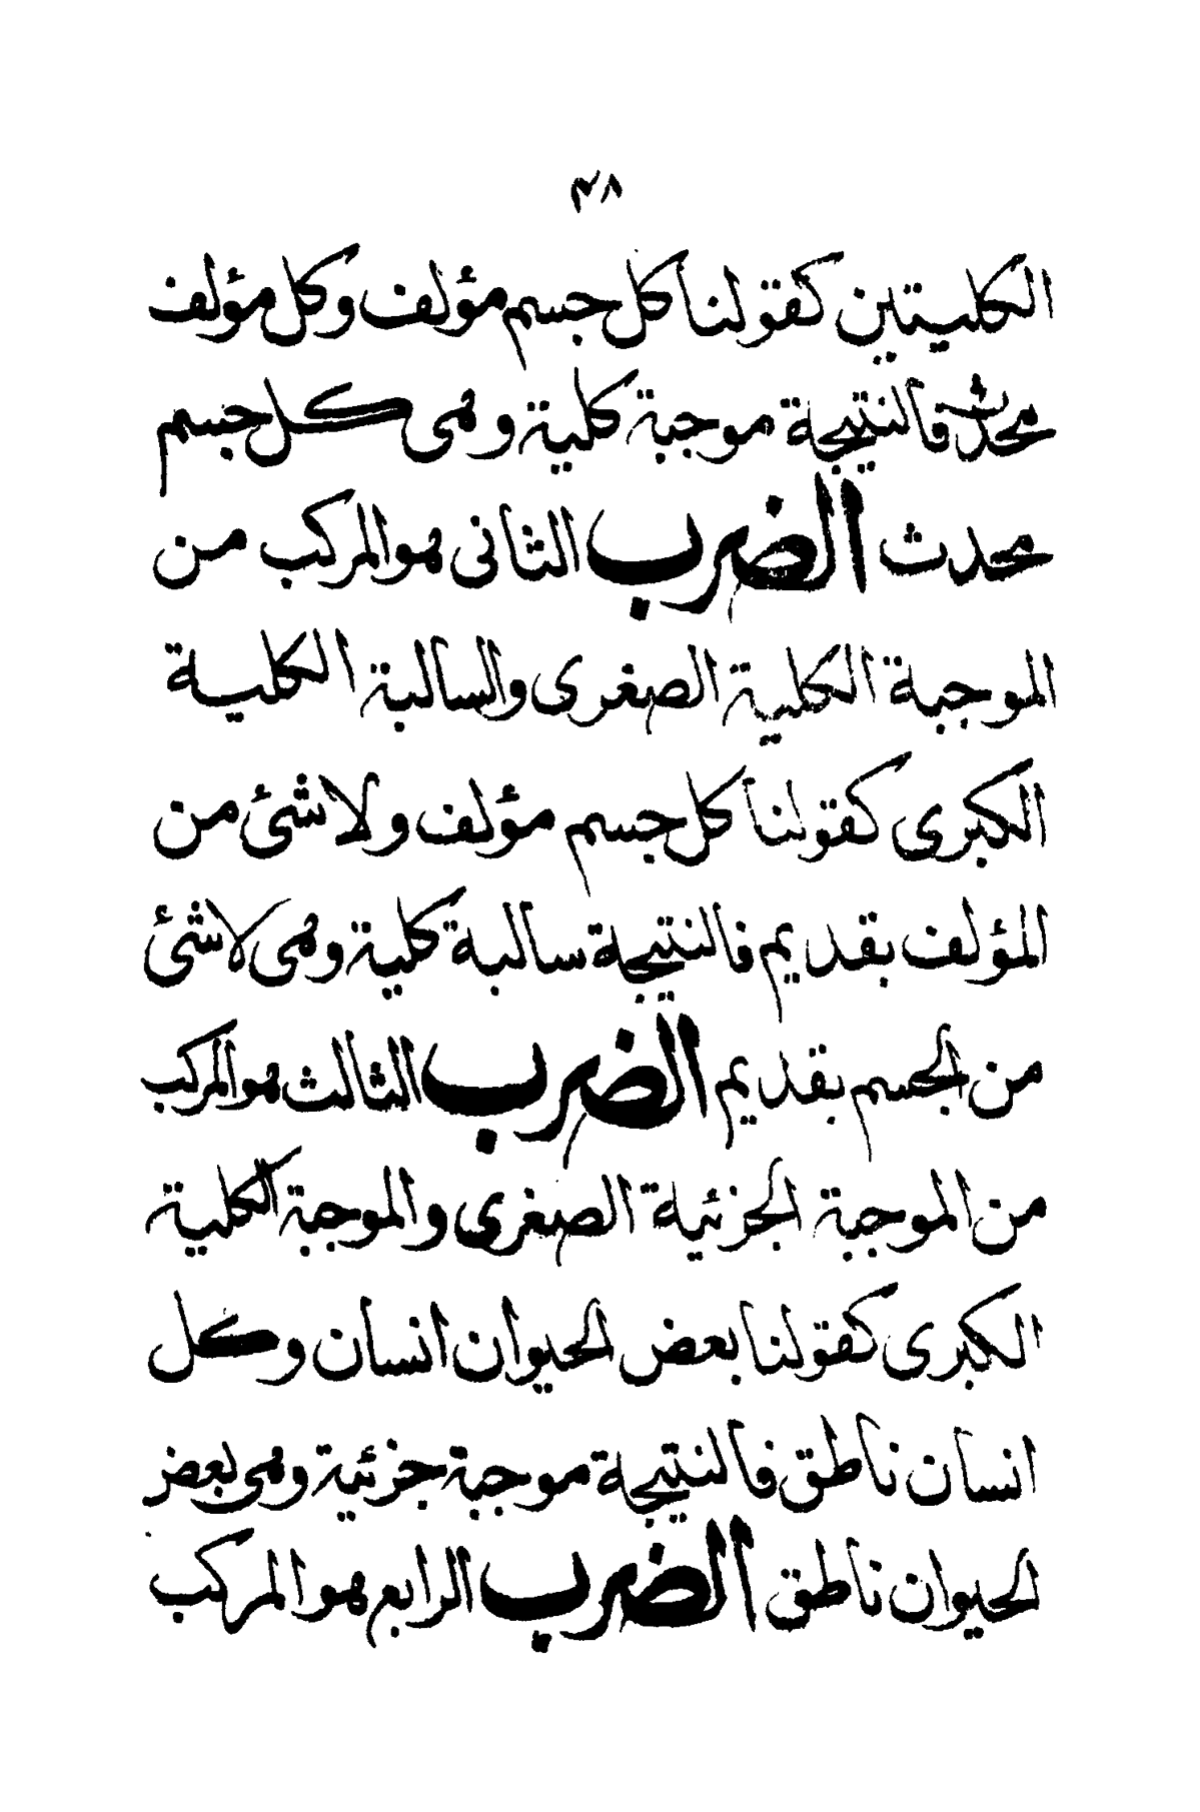 ٣٨
الكليتين كقولنا كل جسم مؤلف وكل مؤلف
محدث فالنتيجة موجبة كلية وهى كل جسم
محدث الضرب الثانى هو المركب من
الموجبة الكلية الصغرى والسالبة الكلية
الكبرى كقولنا كل جسم مؤلف ولا شئ من
المؤلف بقديم فالنتيجة سالبة كلية وهى لا شئ
من الجسم بقديم الضرب الثالث هو المركب
من الموجبة الجزئية الصغرى والموجبة الكلية
الكبرى كقولنا بعض الحيوان انسان وكل
انسان ناطق فالنتيجة موجبة جزئية وهى بعض
الحيوان ناطق الضرب الرابع هو المركب